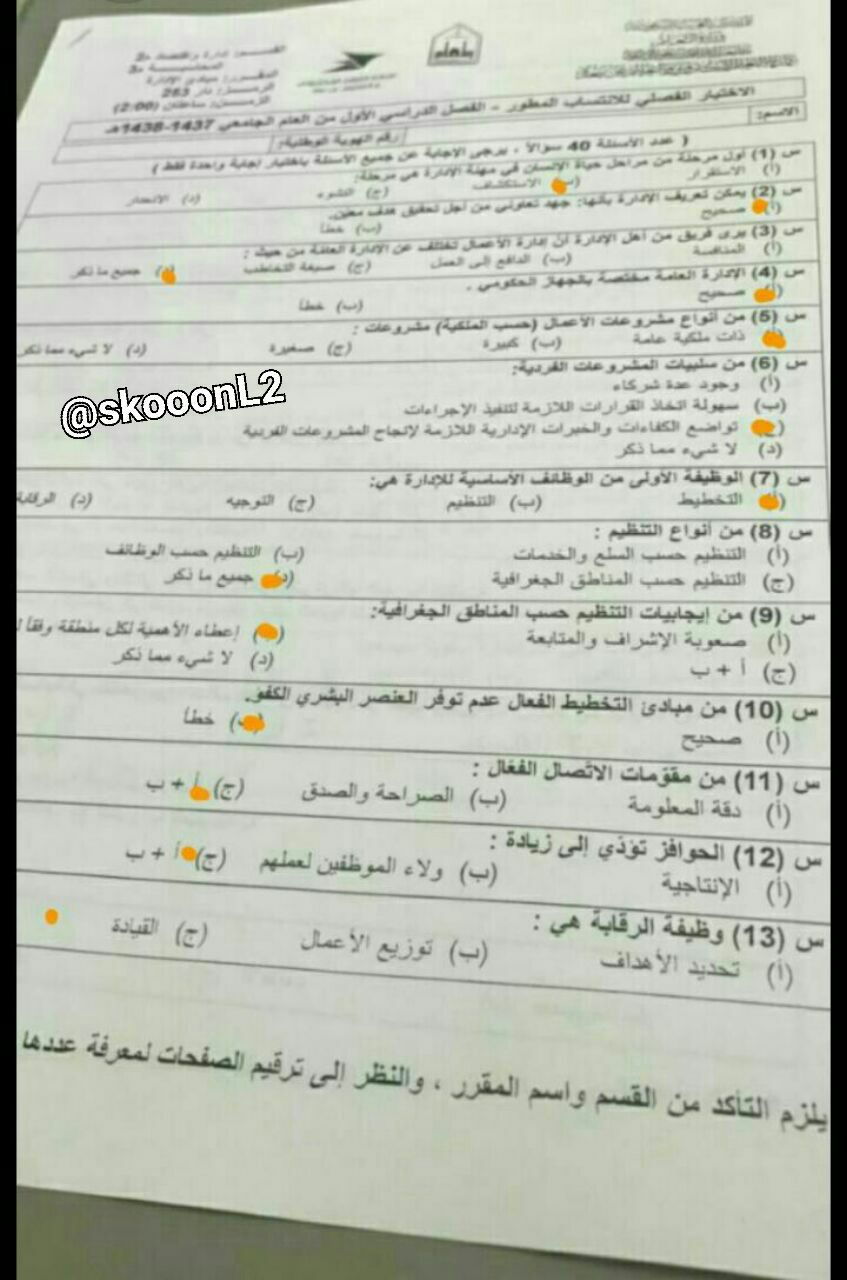 الاختبار الفصلي للانتساب المطور - الفصل الدراسي الأول من العام الجامعي 1437-1438هـ
الاسم: رقم الهوية الوطنية:
( عدد الأسئلة 40 سؤالاً ، يرجى الإجابة عن جميع الأسئلة باختيار إجابة واحدة فقط )
س (1) أول مرحلة من مراحل حياة الإنسان في مهنة الإدارة هي مرحلة:
(أ) الاستقرار (ب) الاستكشاف (ج) النشوء (د) الانحدار
س (2) يمكن تعريف الإدارة بأنها: جهد تعاوني من أجل تحقيق هدف معين.
(أ) صحيح (ب) خطأ
س (3) يرى فريق من أهل الإدارة أن إدارة الأعمال تختلف عن الإدارة العامة من حيث :
(أ) المنافسة (ب) الدافع إلى العمل (ج) صيغة التخاطب (د) جميع ما ذكر
س (4) الإدارة العامة مختصة بالجهاز الحكومي .
(أ) صحيح (ب) خطأ
س (5) من أنواع مشروعات الأعمال (حسب الملكية) مشروعات :
(أ) ذات ملكية عامة (ب) كبيرة (ج) صغيرة (د) لا شيء مما ذكر
س (6) من سلبيات المشروعات الفردية:
(أ) وجود عدة شركاء
(ب) سهولة اتخاذ القرارات اللازمة لتنفيذ الإجراءات
(ج) تواضع الكفاءات والخبرات الإدارية اللازمة لإنجاح المشروعات الفردية
(د) لا شيء مما ذكر
@skooonL2
س (7) الوظيفة الأولى من الوظائف الأساسية للإدارة هي:
(أ) التخطيط (ب) التنظيم (ج) التوجيه (د) الرقابة
س (8) من أنواع التنظيم :
(أ) التنظيم حسب السلع والخدمات (ب) التنظيم حسب الوظائف
(ج) التنظيم حسب المناطق الجغرافية (د) جميع ما ذكر
س (9) من إيجابيات التنظيم حسب المناطق الجغرافية:
(أ) صعوبة الإشراف والمتابعة (ب) إعطاء الأهمية لكل منطقة وفقا
(ج) أ + ب (د) لا شيء مما ذكر
س (10) من مبادئ التخطيط الفعال عدم توفر العنصر البشري الكفؤ.
(أ) صحيح (ب) خطأ
س (11) من مقومات الاتصال الفعال :
(أ) دقة المعلومة (ب) الصراحة والصدق (ج) أ + ب
س (12) الحوافز تؤدي إلى زيادة :
(أ) الإنتاجية (ب) ولاء الموظفين لعملهم (ج) أ + ب
س (13) وظيفة الرقابة هي :
(أ) تحديد الأهداف (ب) توزيع الأعمال (ج) القيادة
يلزم التأكد من القسم واسم المقرر ، والنظر إلى ترقيم الصفحات لمعرفة عددها